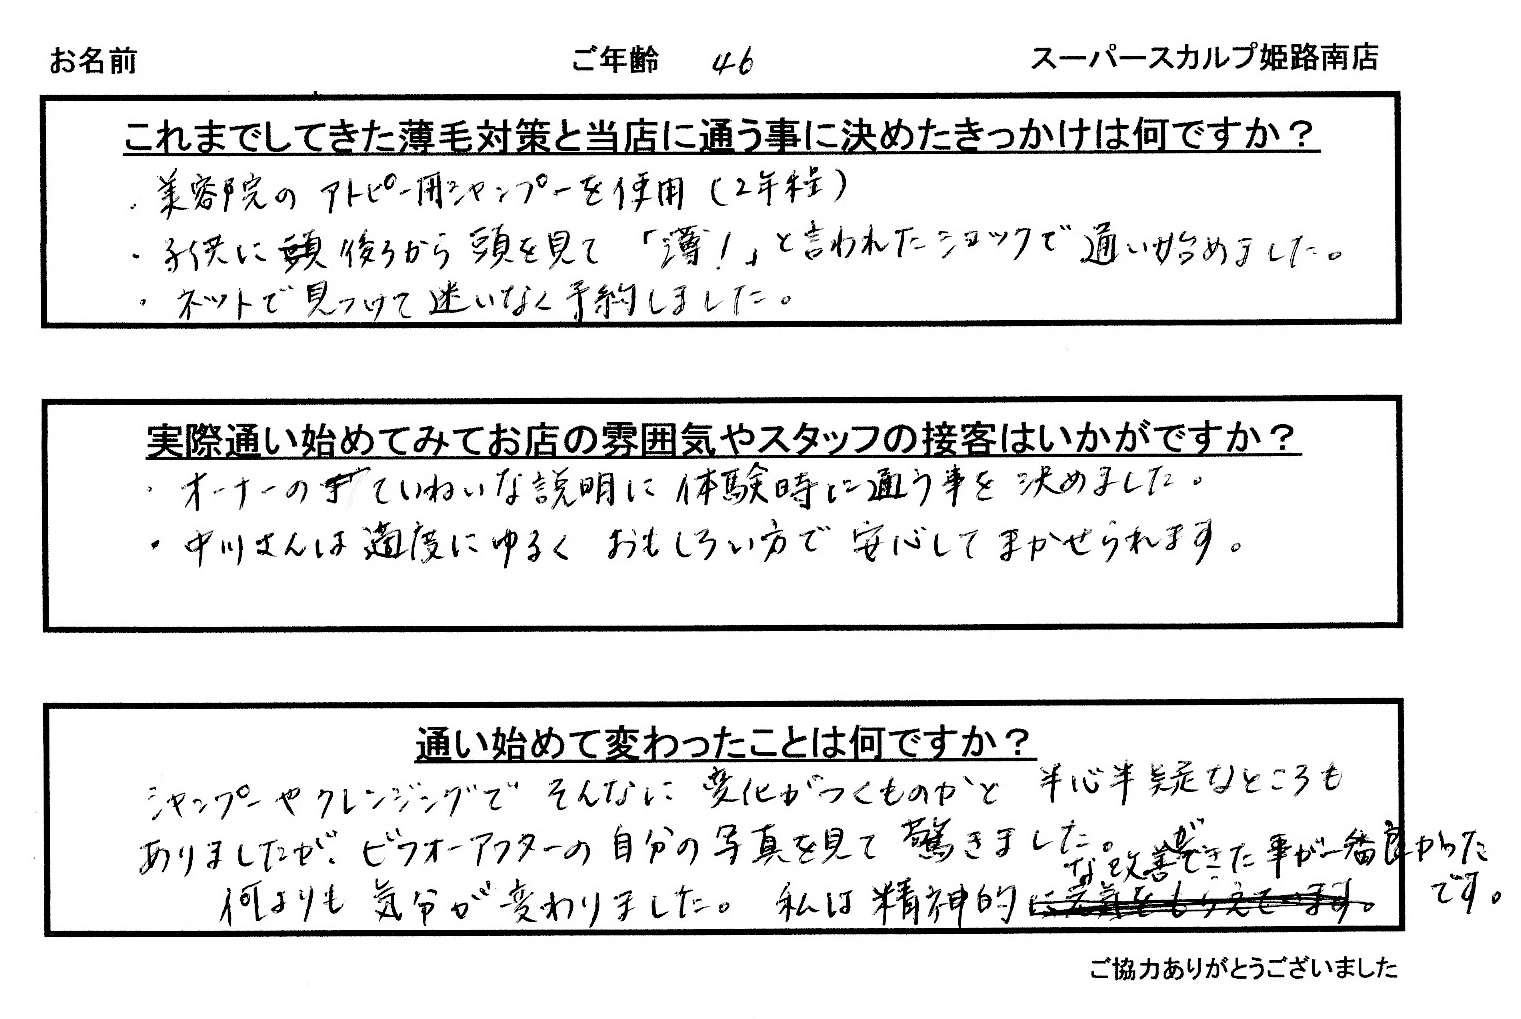 お名前 ご年齢 46 スーパースカルプ姫路南店
これまでしてきた薄毛対策と当店に通う事に決めたきっかけは何ですか？
・美容院のアトピー用シャンプーを使用（2年程）
・子供に後ろから頭を見て「薄！」と言われたショックで通い始めました。
・ネットで見つけて迷いなく予約しました。
実際通い始めてみてお店の雰囲気やスタッフの接客はいかがですか？
・オーナーのていねいな説明に体験時に通う事を決めました。
・中川さんは適度にゆるくおもしろい方で安心してまかせられます。
通い始めて変わったことは何ですか？
シャンプーやクレンジングでそんなに変化がつくものかと半心半疑なところも
ありましたが、ビフォーアフターの自分の写真を見て驚きました。
何よりも気分が変わりました。私は精神的な改善ができた事が一番良かった
です。
ご協力ありがとうございました